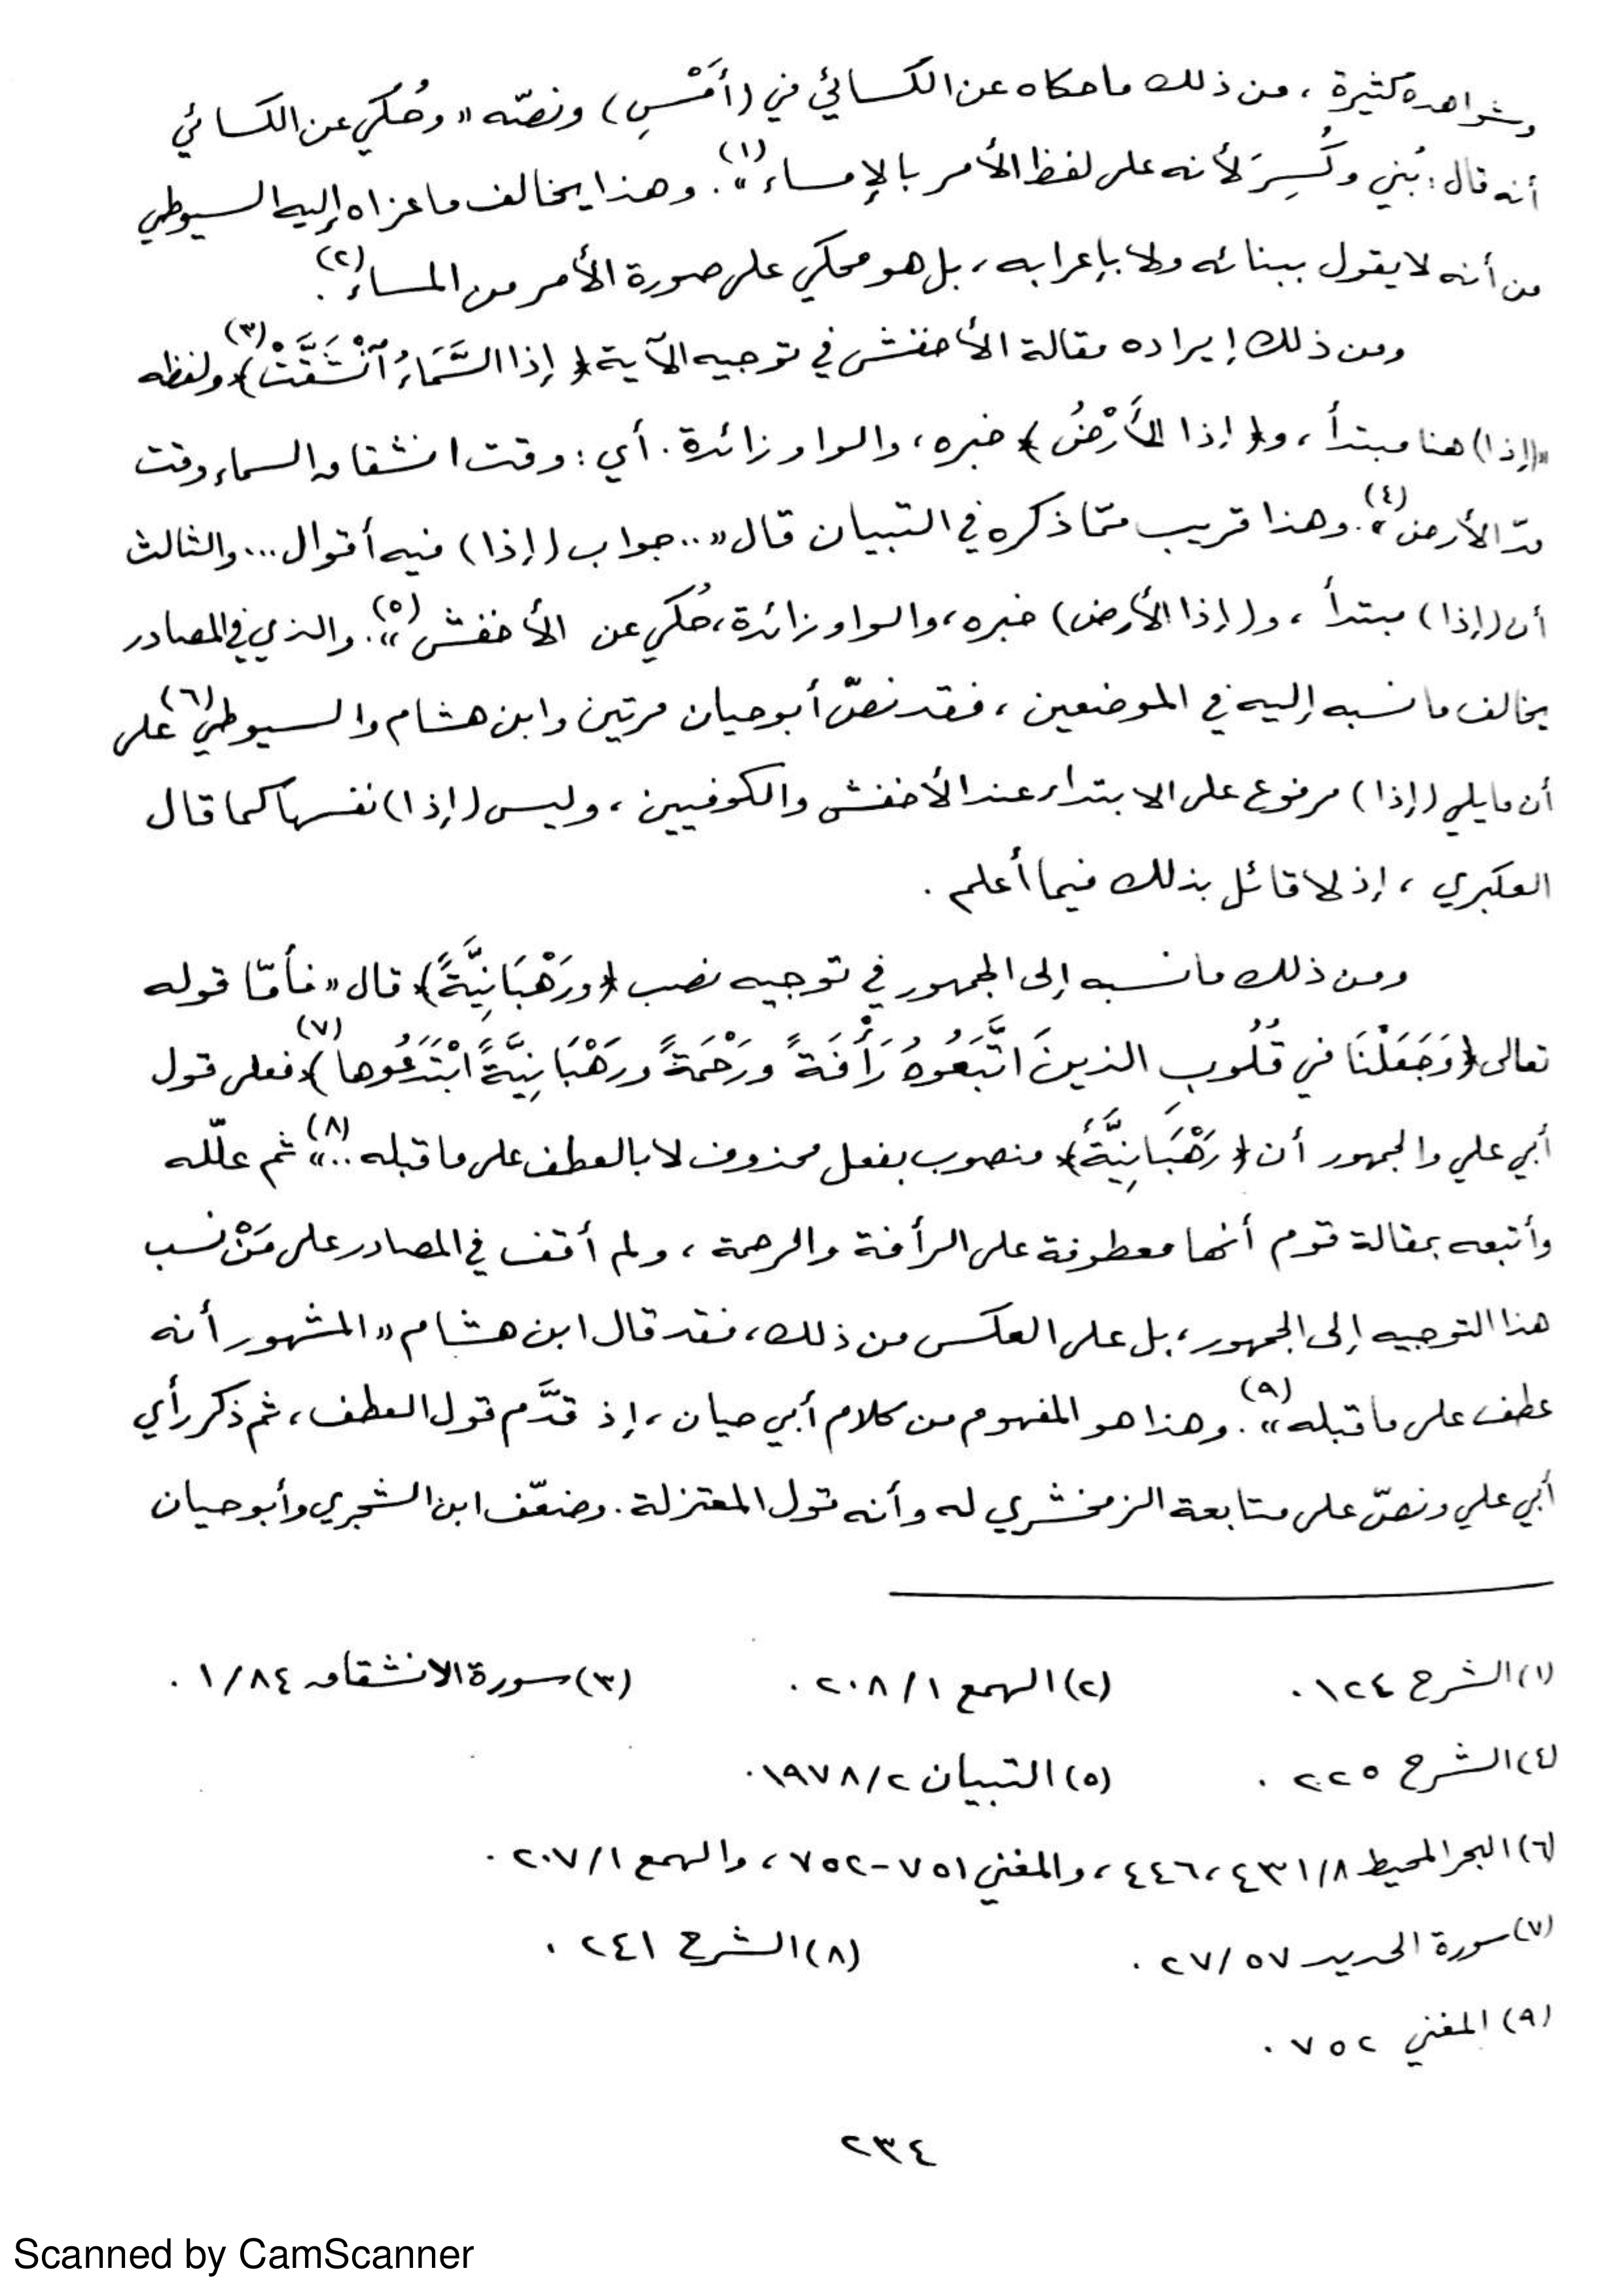 وشواهده كثيرة ، من ذلك ما حكاه عن الكسائي في (أمْسِ) ونصّه « وحُكي عن الكسائي
أنه قال : بُني وكُسِرَ لأنه على لفظ الأمر بالإمساء »(١). وهذا يخالف ما عزاه إليه السيوطي
من أنه لا يقول ببنائه ولا بإعرابه ، بل هو محكي على صورة الأمر من المساء(٢).
ومن ذلك إيراده مقالة الأخفش في توجيه الآية ﴿ إذا السَّمَاءُ ٱنْشَقَّتْ ﴾(٣) ولفظه
« (إذا) هنا مبتدأ ، و﴿ إذا الأَرْضُ ﴾ خبره ، والواو زائدة . أي : وقت انشقاق السماء وقت
مدّ الأرض »(٤). وهذا قريب ممّا ذكره في التبيان قال « .. جواب (إذا) فيه أقوال ... والثالث
أن (إذا) مبتدأ ، و(إذا الأرض) خبره ، والواو زائدة ، حُكي عن الأخفش »(٥). والذي في المصادر
يخالف ما نسبه إليه في الموضعين ، فقد نصّ أبو حيان مرتين وابن هشام والسيوطي(٦) على
أن ما يلي (إذا) مرفوع على الابتداء عند الأخفش والكوفيين ، وليس (إذا) نفسها كما قال
العكبري ، إذ لا قائل بذلك فيما أعلم .
ومن ذلك ما نسبه إلى الجمهور في توجيه نصب ﴿ ورَهْبَانِيَّةً ﴾ قال « فأمّا قوله
تعالى ﴿ وَجَعَلْنَا في قُلُوبِ الذينَ اتَّبَعُوهُ رَأْفَةً ورَحْمَةً ورَهْبَانِيَّةً ابْتَدَعُوها ﴾(٧) فعلى قول
أبي علي والجمهور أن ﴿ رَهْبَانِيَّةً ﴾ منصوب بفعل محذوف لا بالعطف على ما قبله .. »(٨) ثم علّله
وأتبعه بمقالة قوم أنها معطوفة على الرأفة والرحمة ، ولم أقف في المصادر على مَنْ نسب
هذا التوجيه إلى الجمهور ، بل على العكس من ذلك ، فقد قال ابن هشام « المشهور أنه
عطف على ما قبله »(٩). وهذا هو المفهوم من كلام أبي حيان ، إذ قدَّم قول العطف ، ثم ذكر رأي
أبي علي ونصّ على متابعة الزمخشري له وأنه قول المعتزلة . وضعّف ابن الشجري وأبو حيان
(١) الشرح ١٢٤ . (٢) الهمع ١/ ٢٠٨ . (٣) سورة الانشقاق ٨٤/ ١ .
(٤) الشرح ٢٢٥ . (٥) التبيان ٢/ ١٩٧٨ .
(٦) البحر المحيط ٨/ ٤٣١، ٤٤٦ ، والمغني ٧٥١-٧٥٢ ، والهمع ١/ ٢٠٧ .
(٧) سورة الحديد ٥٧/ ٢٧ . (٨) الشرح ٢٤١ .
(٩) المغني ٧٥٢ .
٢٣٤
Scanned by CamScanner